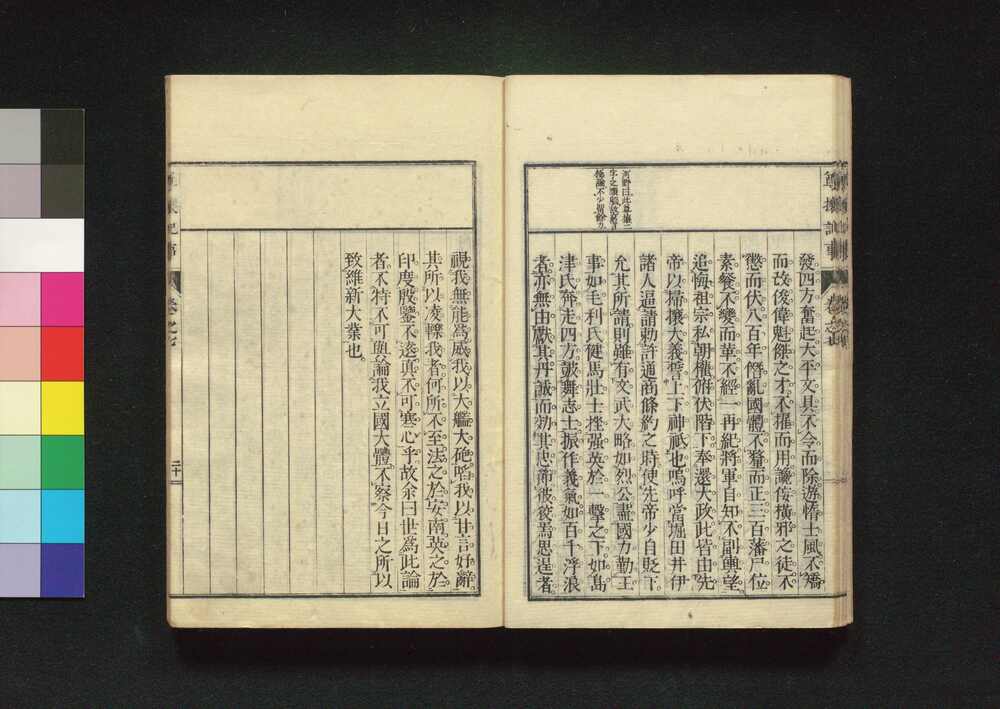 河野曰此尊攘二
發四方奮起大平文具不令而除遊惰士風不矯
而改俊偉魁傑之才不擢而用讒佞橫邪之徒不
懲而伏八百年僭亂國體不釐而正三百藩尸位
素餐不變而華不經一再紀將軍自知不副輿望
追悔祖宗私朝權俯伏階下奉還大政此皆由先
帝以掃攘大義誓上下神祇也嗚呼當堀田井伊
諸人逼請勅許通商條約之時使先帝少自貶下
允其所請則雖有文武大略如烈公盡國力勤王
事如毛利氏健馬壯士挫强英於一擊之下如島
津氏奔走四方皷舞志士振作義氣如百千浮浪
者亦無由獻其丹誠而効其忠節彼彼焉思逞者
視我無能爲威我以大艦大砲啗我以甘言好辭
其所以凌轢我者何所不至法之於安南英之於
印度殷鑒不遠眞不可寒心乎故余曰世爲此論
者不特不可與論我立國大體不察今日之所以
致維新大業也
卷之七
二十